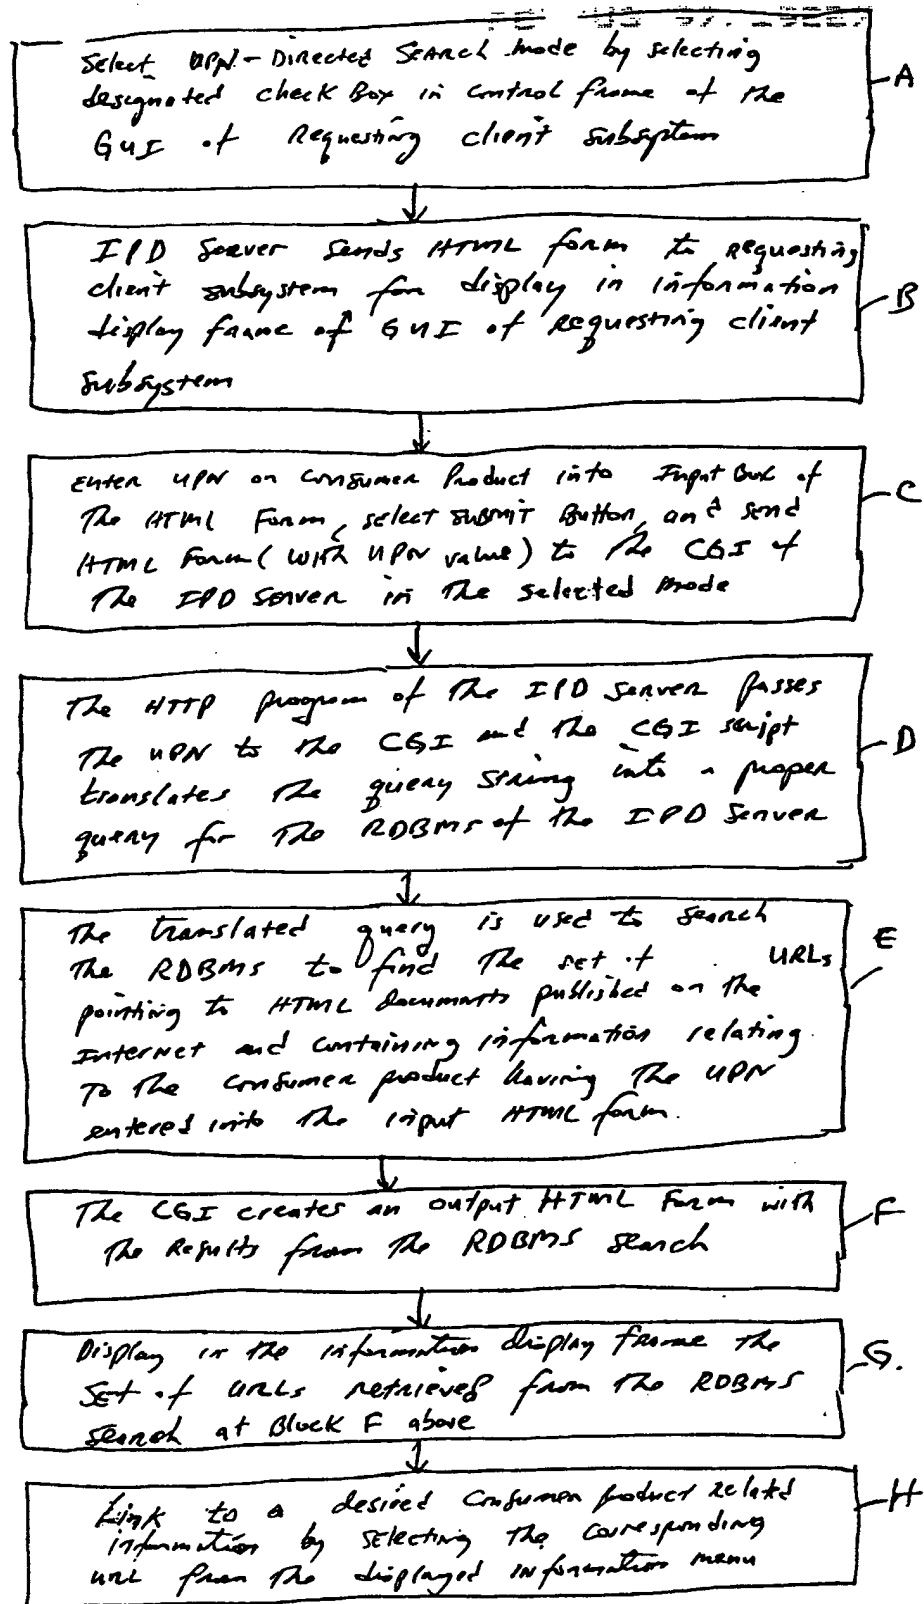 Select UPN-Directed Search mode by selecting
designated check Box in control frame of the
GUI of Requesting client subsystem
A
IPD Server sends HTML form to requesting
client subsystem for display in information
display frame of GUI of requesting client
subsystem
B
Enter UPN on Consumer Product into Input Box of
The HTML Form, select submit Button, and send
HTML Form (with UPN value) to the CGI of
The IPD Server in the selected mode
C
The HTTP program of the IPD Server passes
The UPN to the CGI and the CGI script
translates the query string into a proper
query for the RDBMS of the IPD Server
D
The translated query is used to search
the RDBMS to find the set of URLs
pointing to HTML documents published on the
Internet and containing information relating
To the consumer product having the UPN
entered into the input HTML form.
E
The CGI creates an output HTML Form with
The Results from the RDBMS search
F
Display in the information display frame the
Set of URLs retrieved from the RDBMS
search at Block F above
G.
Link to a desired Consumer product related
information by selecting the corresponding
URL from the displayed information menu
H